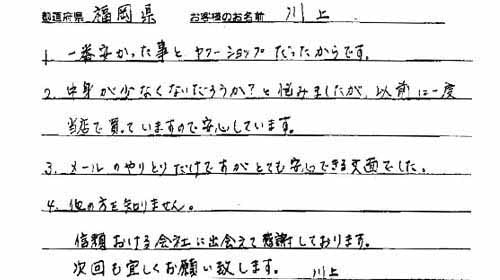 都道府県 福岡県 お客様のお名前 川上
1. 一番安かった事と ヤフーショップだったからです。
2. 中身が少なくないだろうか?と悩みましたが、以前に一度
当店で買っていますので安心しています。
3. メールのやりとりだけですがとても安心できる文面でした。
4. 他の方を知りません。
信頼おける会社に出会えて感謝しております。
次回も宜しくお願い致します。 川上